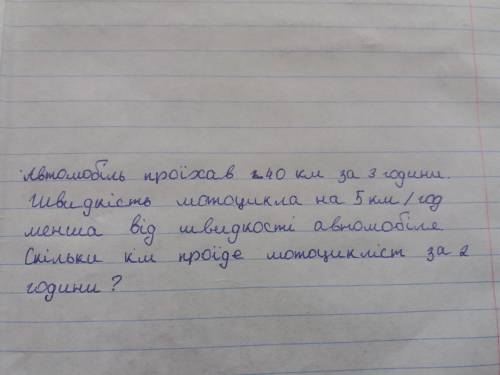 Автомобіль проїхав 240 км за 3 години.
Швидкість мотоцикла на 5 км/год
менша від швидкості автомобіля
Скільки км проїде мотоцикліст за 2
години?